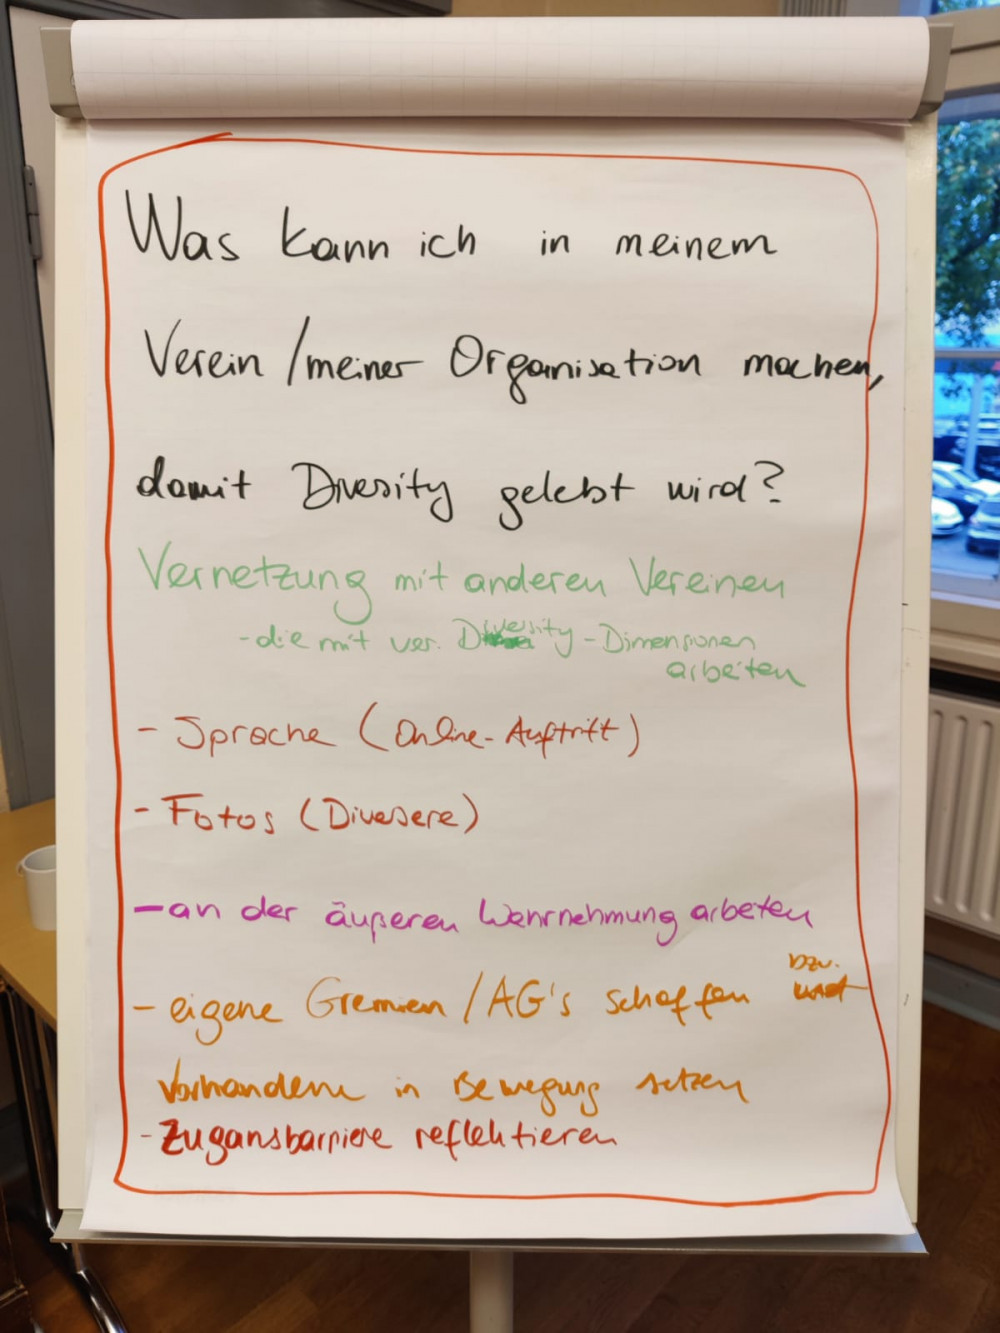 Was kann ich in meinem
Verein / meiner Organisation machen,
damit Diversity gelebt wird?
Vernetzung mit anderen Vereinen
- die mit ver. Diversity - Dimensionen
arbeiten
- Sprache (Online-Auftritt)
- Fotos (Diversere)
- an der äußeren Wahrnehmung arbeiten
- eigene Gremien / AG's schaffen bzw. und
vorhandene in Bewegung setzen
- Zugansbarriere reflektieren